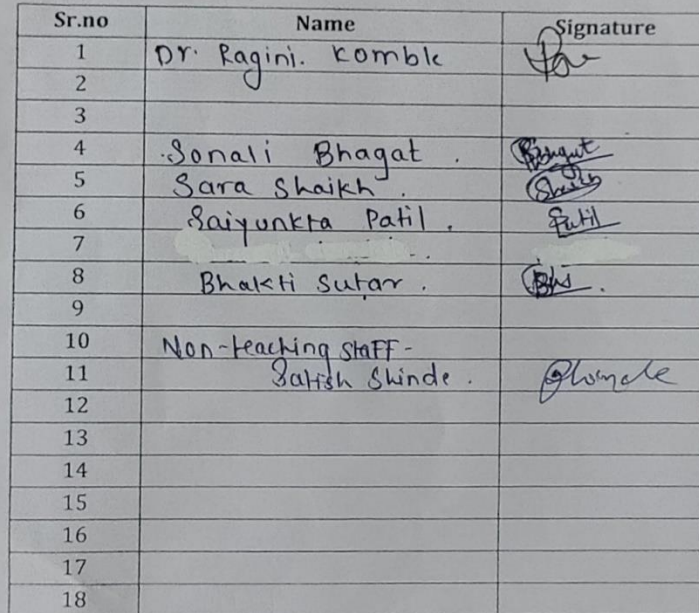 Sr.no Name Signature
1 Dr. Ragini. Komble
2
3
4 Sonali Bhagat . Bhagat
5 Sara Shaikh . Shaikh
6 Saiyunkta Patil . Patil
7
8 Bhakti Sutar .
9
10 Non-teaching staFF -
11 Satish Shinde .
12
13
14
15
16
17
18